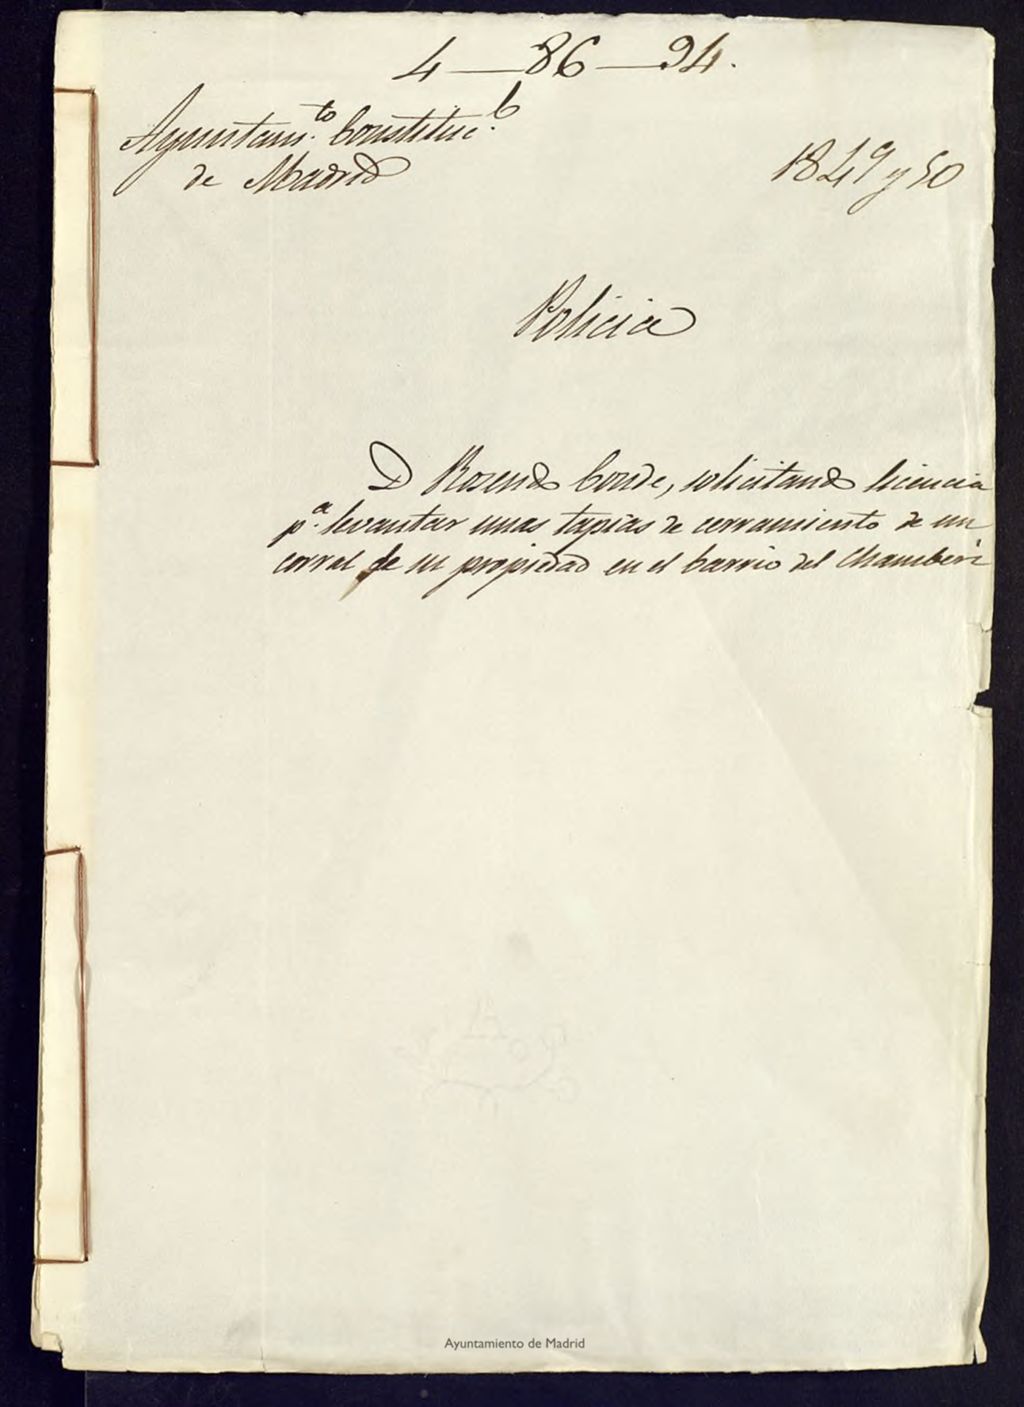 4—86—94.
Ayuntam.to Constituc.l
de Madrid
1849 y 50
Policia
D Rosendo Conde, solicitando licencia
p.a levantar unas tapias de cerramiento de un
corral de su propiedad en el barrio del Chamberi
Ayuntamiento de Madrid